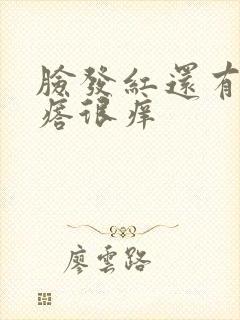 臉發紅還有
痞很痒
廖雲路